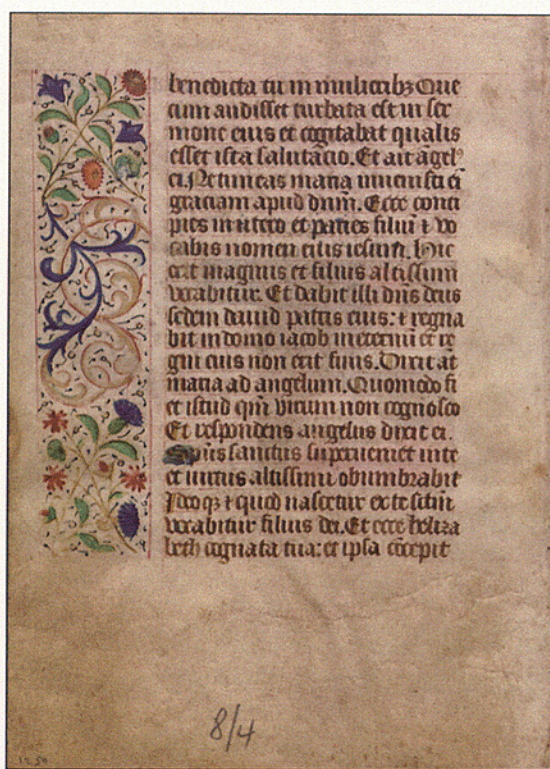 benedicta tu in mulieribꝫ Que
cum audisset turbata est in ser
mone eius et cogitabat qualis
esset ista salutacio. Et ait āgelꝰ
ei. Ne timeas maria inuenisti ei
graciam apud dnm̄. Ecce conci
pies in utero et paries filiū ⁊ vo
cabis nomen eius iesum. Hic
erit magnus et filius altissimi
vocabitur. Et dabit illi dn̄s deus
sedem dauid patris eius: ⁊ regna
bit in domo iacob in eternū et re
gni eius non erit finis. Dixit aūt
maria ad angelum. Quomodo fi
et istud qm̄ virum non cognosco
Et respondens angelus dixit ei.
Spūs sanctus superueniet in te
et uirtus altissimi obumbrabit
Ideoqꝫ ⁊ quod nascetur ex te sctm̄
vocabitur filius dei. Et ecce heliza
beth cognata tua: et ipsa cōcepit
8/4
12.50